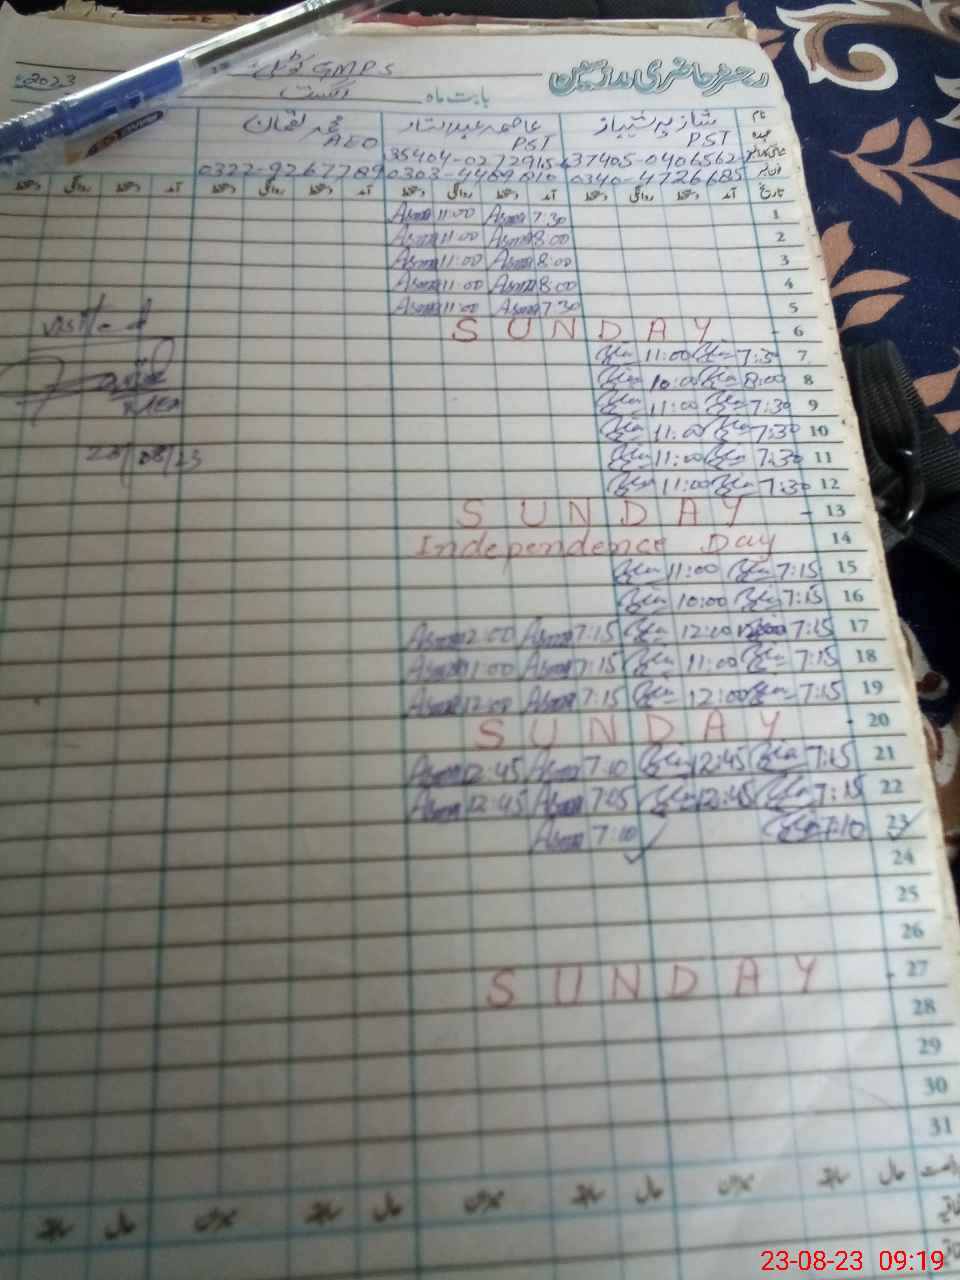 رجسٹر حاضری ملازمین
GMPS
2023
بابت ماہ اگست
نام شازیہ شہباز عاصمہ عبدالستار محمد لقمان
عہدہ PST PST AEO
37405-0406562- 35404-0272915-
0340-4726685 0303-4469010 0322-9267789
تاریخ آمد دستخط روانگی دستخط آمد دستخط روانگی دستخط آمد دستخط روانگی دستخط آمد دستخط روانگی دستخط
1 7:30 Asma 11:00 Asma
2 8:00 Asma 11:00 Asma
3 8:00 Asma 11:00 Asma
4 8:00 Asma 11:00 Asma
5 7:30 Asma 11:00 Asma
6 SUNDAY
7 7:30 11:00
8 8:00 10:00
9 7:30 11:00
10 7:30 11:00
11 7:30 11:00
12 7:30 11:00
13 SUNDAY
14 Independence Day
15 7:15 11:00
16 7:15 10:00
17 7:15 12:00 7:15 Asma 12:00 Asma
18 7:15 11:00 7:15 Asma 11:00 Asma
19 7:15 12:00 7:15 Asma 12:00 Asma
20 SUNDAY
21 7:15 12:45 7:10 Asma 12:45 Asma
22 7:15 12:45 7:15 Asma 12:45 Asma
23 7:10 7:10 Asma
24
25
26
27 SUNDAY
28
29
30
31
visited
23/08/23
حال سابقہ میزان حال سابقہ میزان حال سابقہ میزان حال سابقہ
23-08-23 09:19